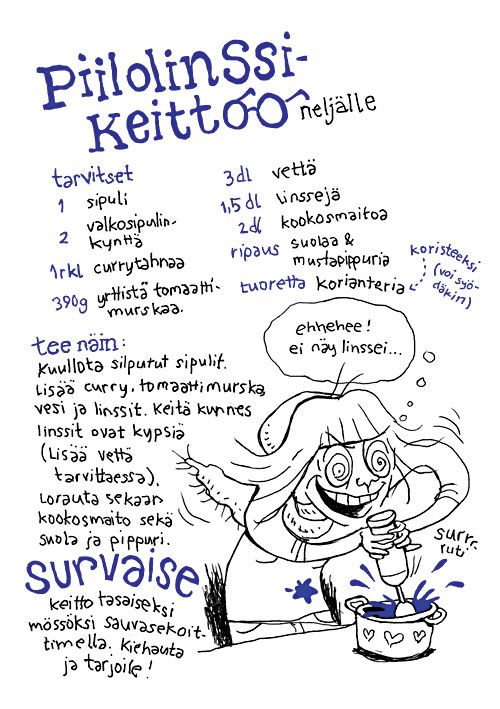 Piilolinssi-
keittoo neljälle
tarvitset
1 sipuli
2 valkosipulin-
kynttä
1rkl currytahnaa
390g yrttistä tomaatti-
murskaa.
3dl vettä
1,5dl linssejä
2dl kookosmaitoa
ripaus suolaa &
mustapippuria
tuoretta korianteria
koristeeksi
(voi syö-
däkin)
tee näin:
Kuullota silputut sipulit.
Lisää curry, tomaattimurska,
vesi ja linssit. Keitä kunnes
linssit ovat kypsiä
(Lisää vettä
tarvittaessa).
Lorauta sekaan
kookosmaito sekä
suola ja pippuri.
survaise
keitto tasaiseksi
mössöksi sauvasekoit-
timella. Kiehauta
ja tarjoile!
ehhehee!
ei näy linssei...
surrr-
rut!